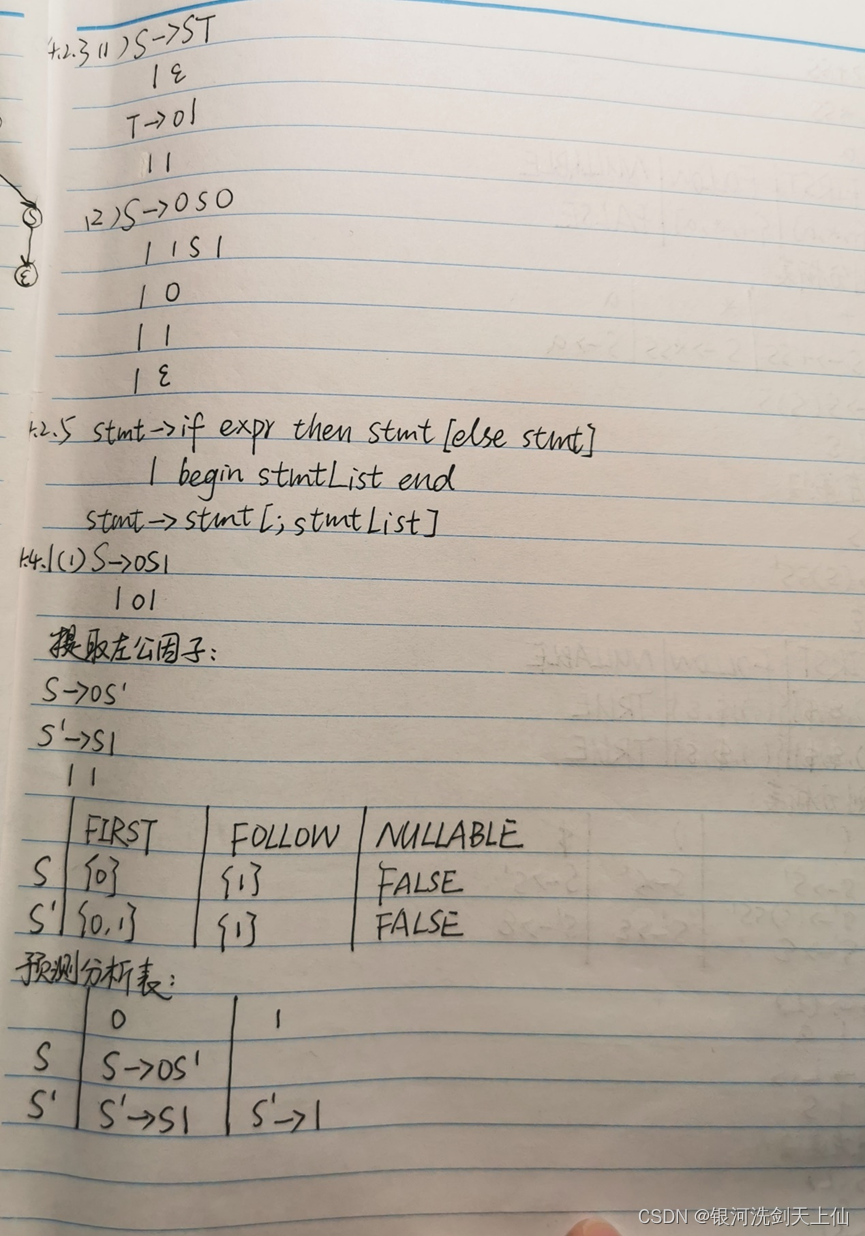 4.2.3(1) S→ST
| ε
T→01
| 1
(2) S→0S0
| 1S1
| 0
| 1
| ε
4.2.5 stmt→if expr then stmt [else stmt]
| begin stmtList end
stmt→stmt[;stmtList]
4.4.1(1) S→0S1
| 01
提取左公因子:
S→0S'
S'→S1
| 1
FIRST FOLLOW NULLABLE
S {0} {1} FALSE
S' {0,1} {1} FALSE
预测分析表:
0 1
S S→0S'
S' S'→S1 S'→1
S
ε
CSDN @银河洗剑天上仙